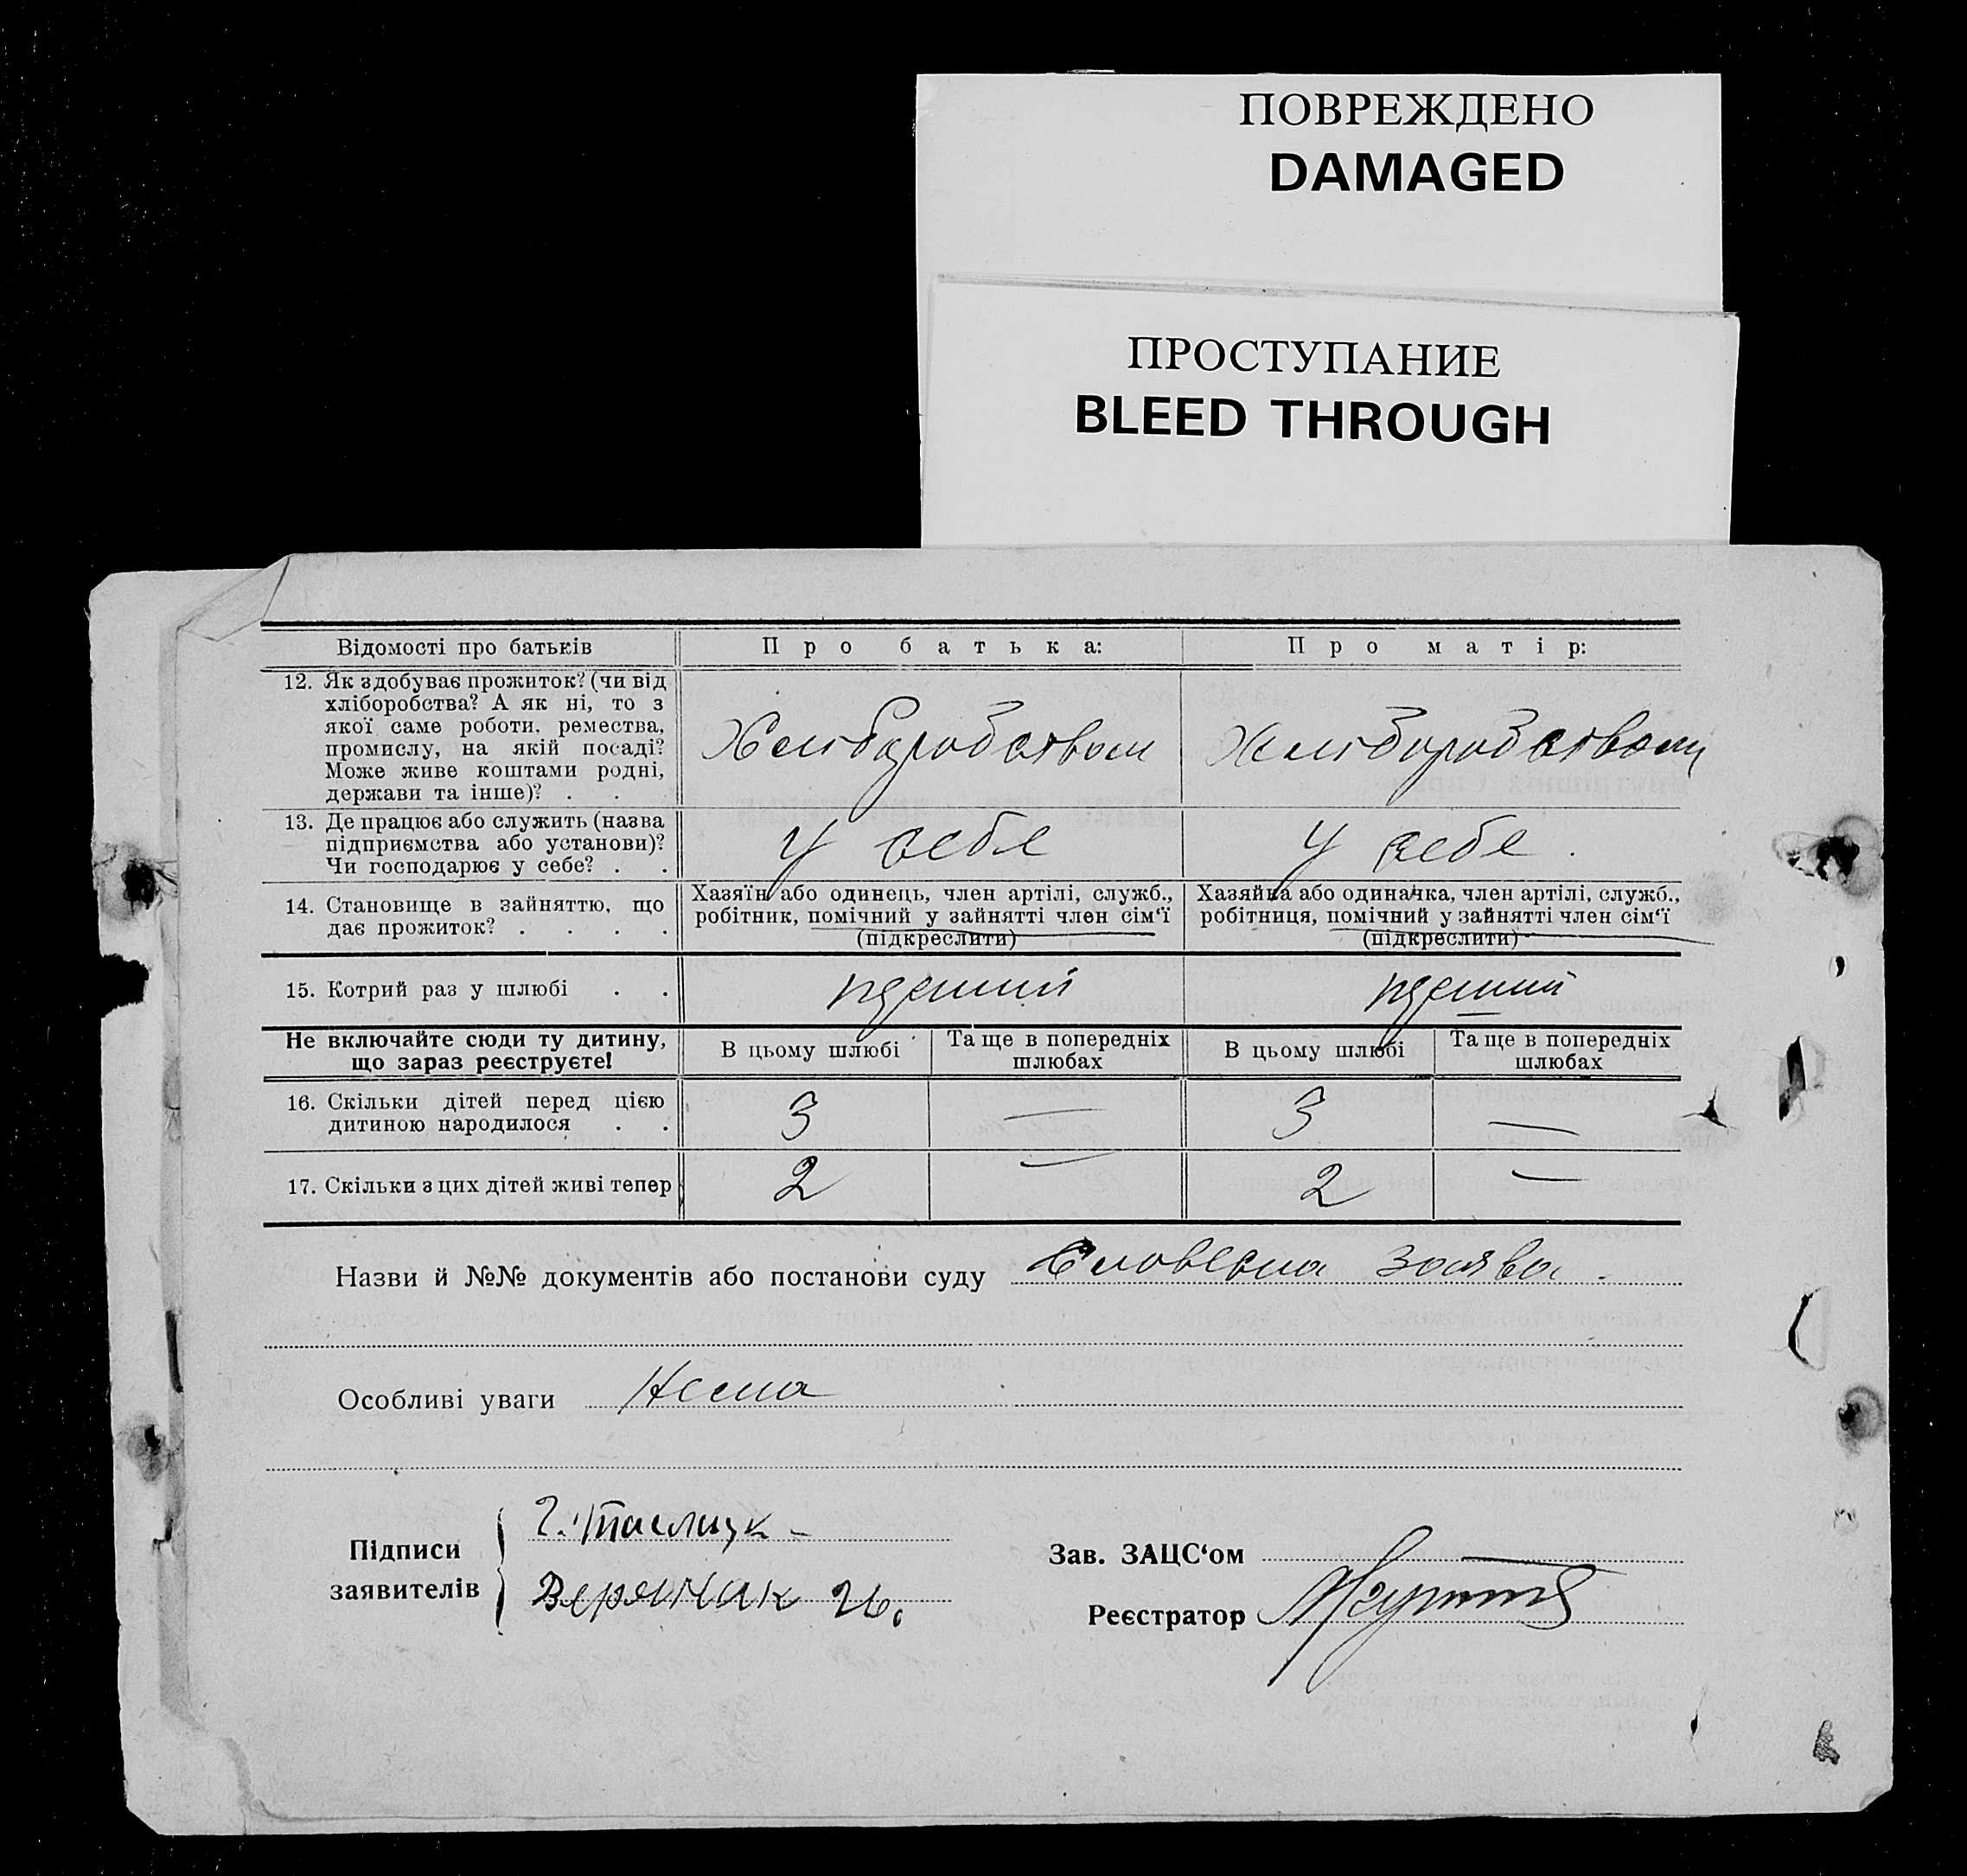 ПОВРЕЖДЕНО
DAMAGED
ПРОСТУПАНИЕ
BLEED THROUGH
Відомості про батьків
Про батька:
Про матір:
12. Як здобуває прожиток? (чи від
хліборобства? А як ні, то з
якої саме роботи, ремества,
промислу, на якій посаді?
Може живе коштами родні,
держави та інше)? . .
Хлиборобством
Хлиборобством
13. Де працює або служить (назва
підприємства або установи)?
Чи господарює у себе? . .
У себе
У себе.
14. Становище в зайняттю, що
дає прожиток? . . . .
Хазяїн або одинець, член артілі, служб.,
робітник, помічний у зайнятті член сім‘ї
(підкреслити)
Хазяйка або одиначка, член артілі, служб.,
робітниця, помічний у зайнятті член сім‘ї
(підкреслити)
15. Котрий раз у шлюбі . .
перший
перший
Не включайте сюди ту дитину,
що зараз реєструєте!
В цьому шлюбі
Та ще в попередніх
шлюбах
В цьому шлюбі
Та ще в попередніх
шлюбах
16. Скільки дітей перед цією
дитиною народилося . .
3
—
3
—
17. Скільки з цих дітей живі тепер
2
—
2
—
Назви й №№ документів або постанови суду Словесна заява.
Особливі уваги Нема
Підписи
заявителів
Зав. ЗАЦС‘ом
Реєстратор